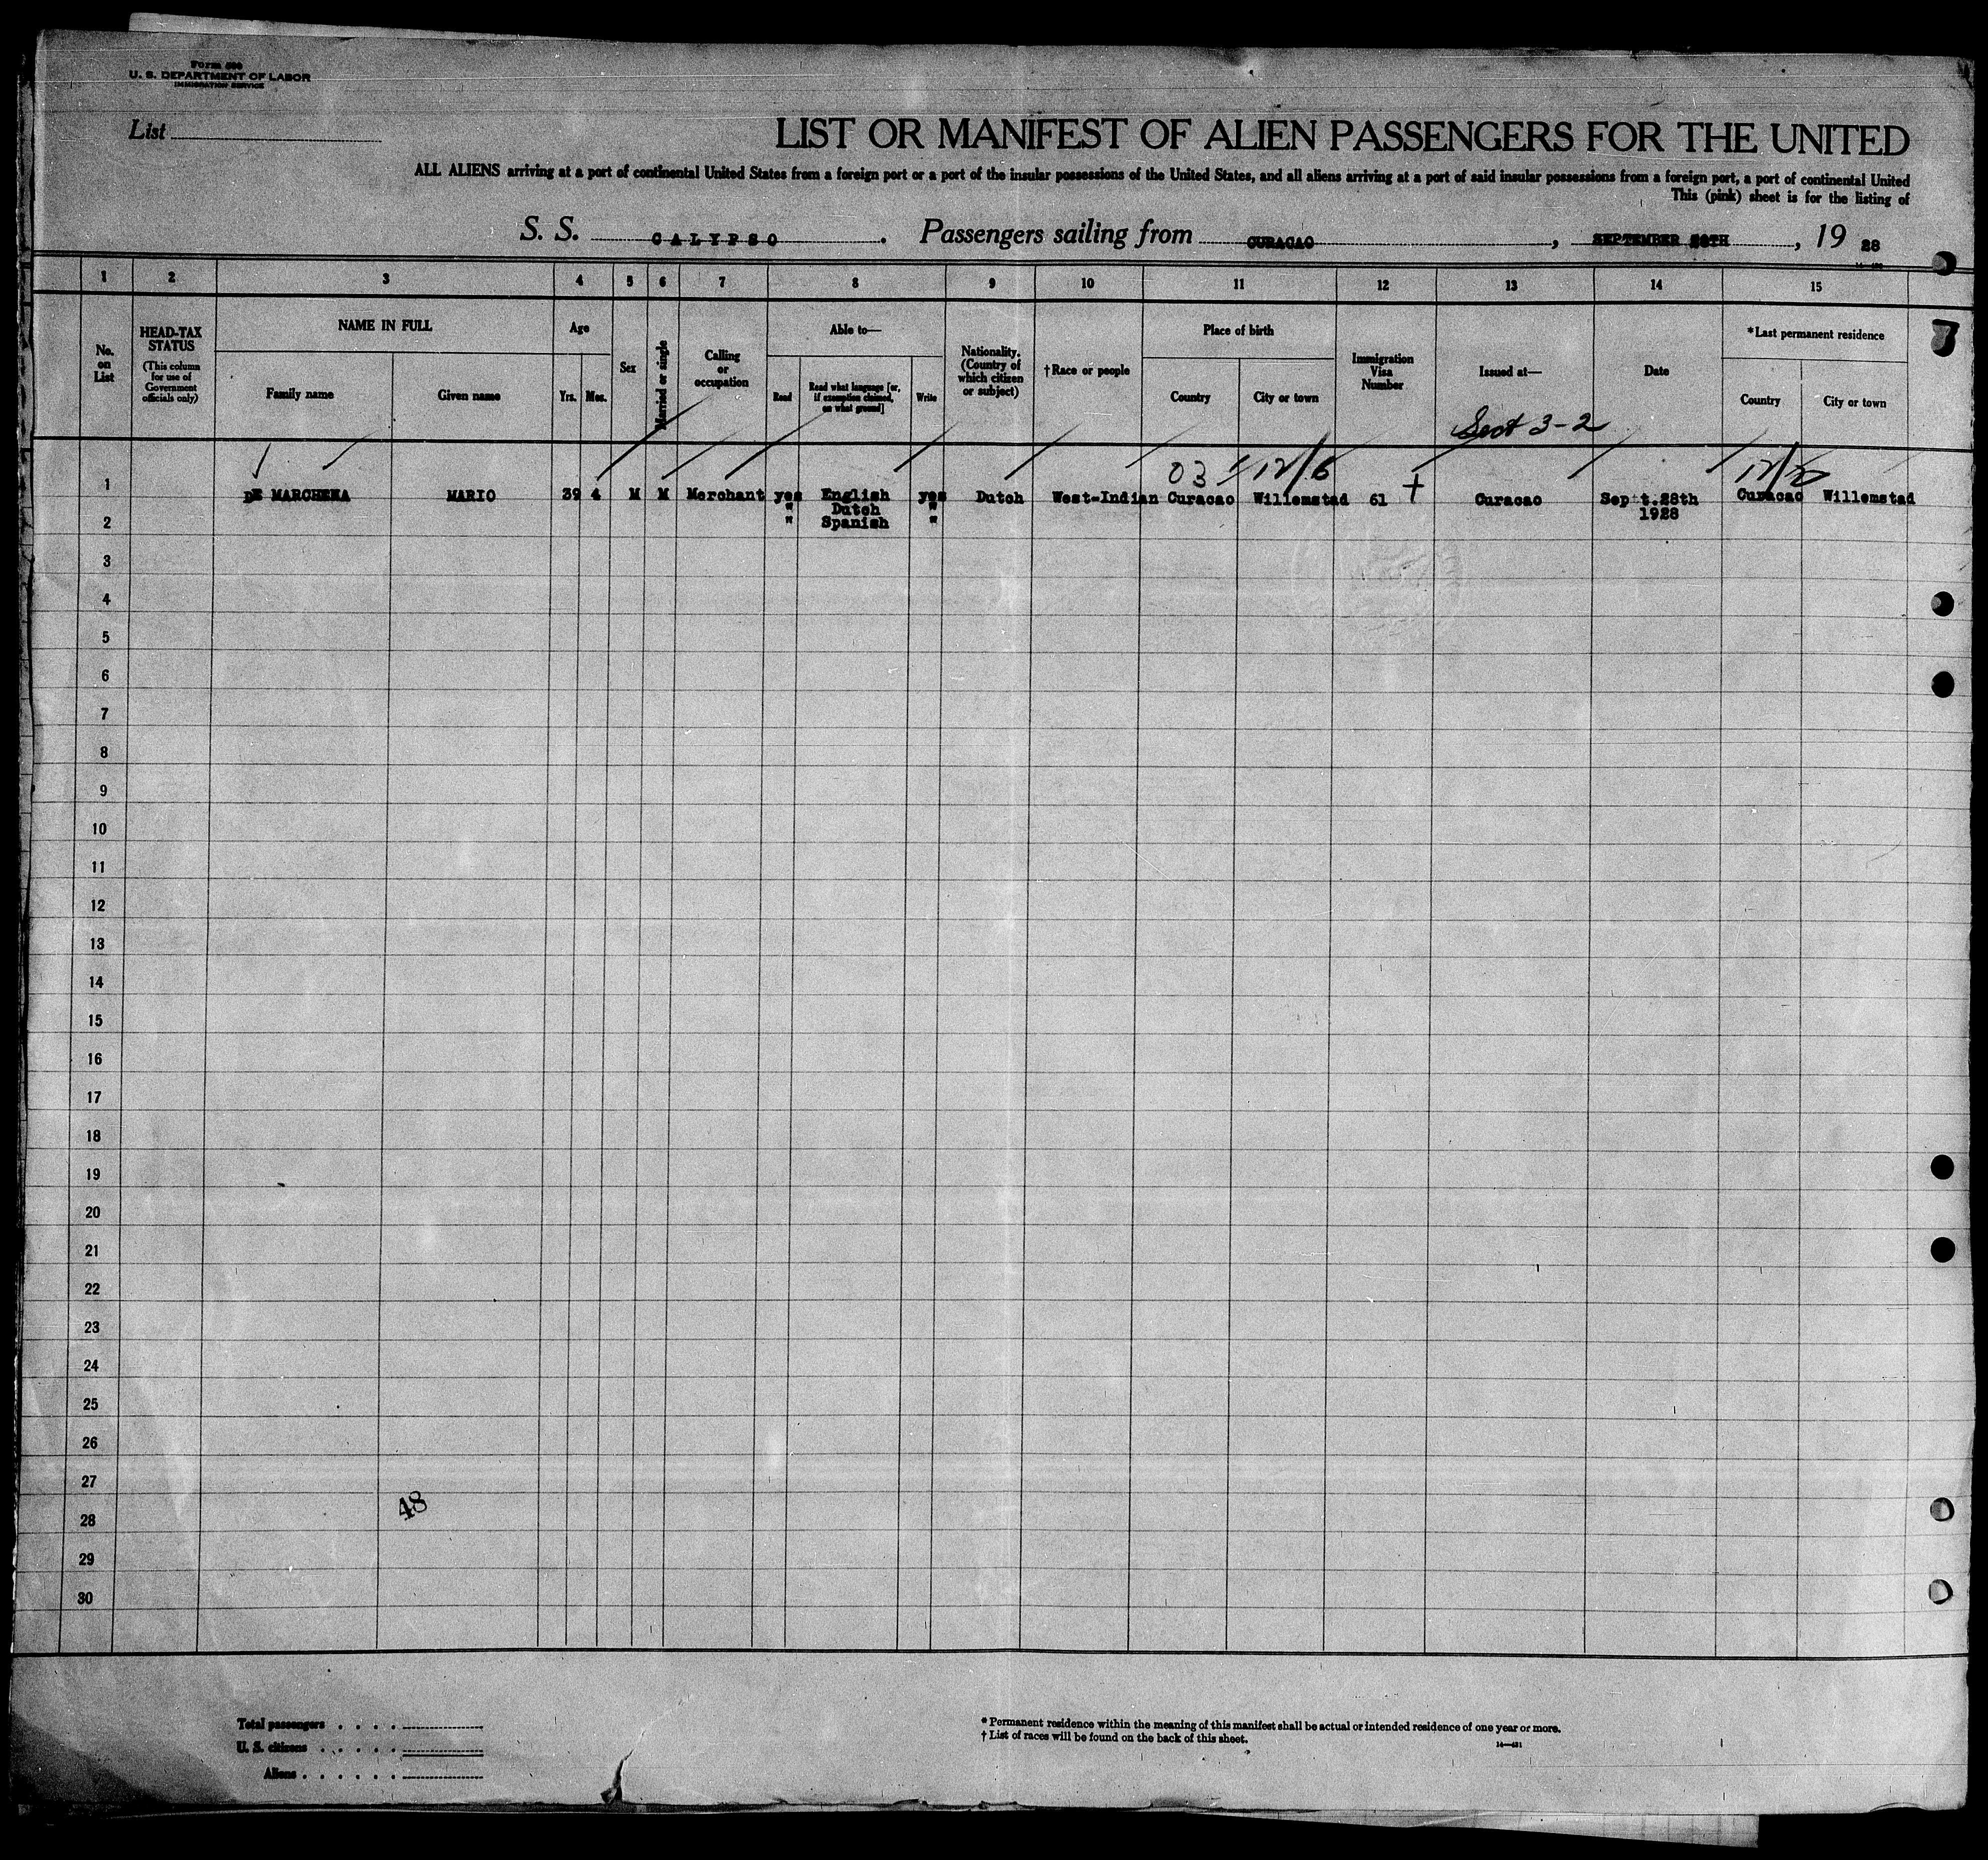 Form 500
U. S. DEPARTMENT OF LABOR
IMMIGRATION SERVICE
List
LIST OR MANIFEST OF ALIEN PASSENGERS FOR THE UNITED
ALL ALIENS arriving at a port of continental United States from a foreign port or a port of the insular possessions of the United States, and all aliens arriving at a port of said insular possessions from a foreign port, a port of continental United
This (pink) sheet is for the listing of
S. S. CALYPSO. Passengers sailing from CURACAO, SEPTEMBER 28TH, 19 28
1 2 3 4 5 6 7 8 9 10 11 12 13 14 15
No. on List
HEAD-TAX STATUS
(This column for use of Government officials only)
NAME IN FULL
Family name
Given name
Age
Yrs. Mos.
Sex
Married or single
Calling or occupation
Able to—
Read
Read what language [or, if exemption claimed, on what ground]
Write
Nationality. (Country of which citizen or subject)
†Race or people
Place of birth
Country
City or town
Immigration Visa Number
Issued at—
Date
*Last permanent residence
Country
City or town
7
Sect 3-2
03
1 DE MARCHENA MARIO 39 4 M M Merchant yes English yes Dutch West-Indian Curacao Willemstad 61 Curacao Sept.28th Curacao Willemstad
" Dutch "
2 " Spanish " 1928
3
4
5
6
7
8
9
10
11
12
13
14
15
16
17
18
19
20
21
22
23
24
25
26
27
48
28
29
30
Total passengers . . . .
U. S. citizens . . . . .
Aliens . . . . . .
* Permanent residence within the meaning of this manifest shall be actual or intended residence of one year or more.
† List of races will be found on the back of this sheet.